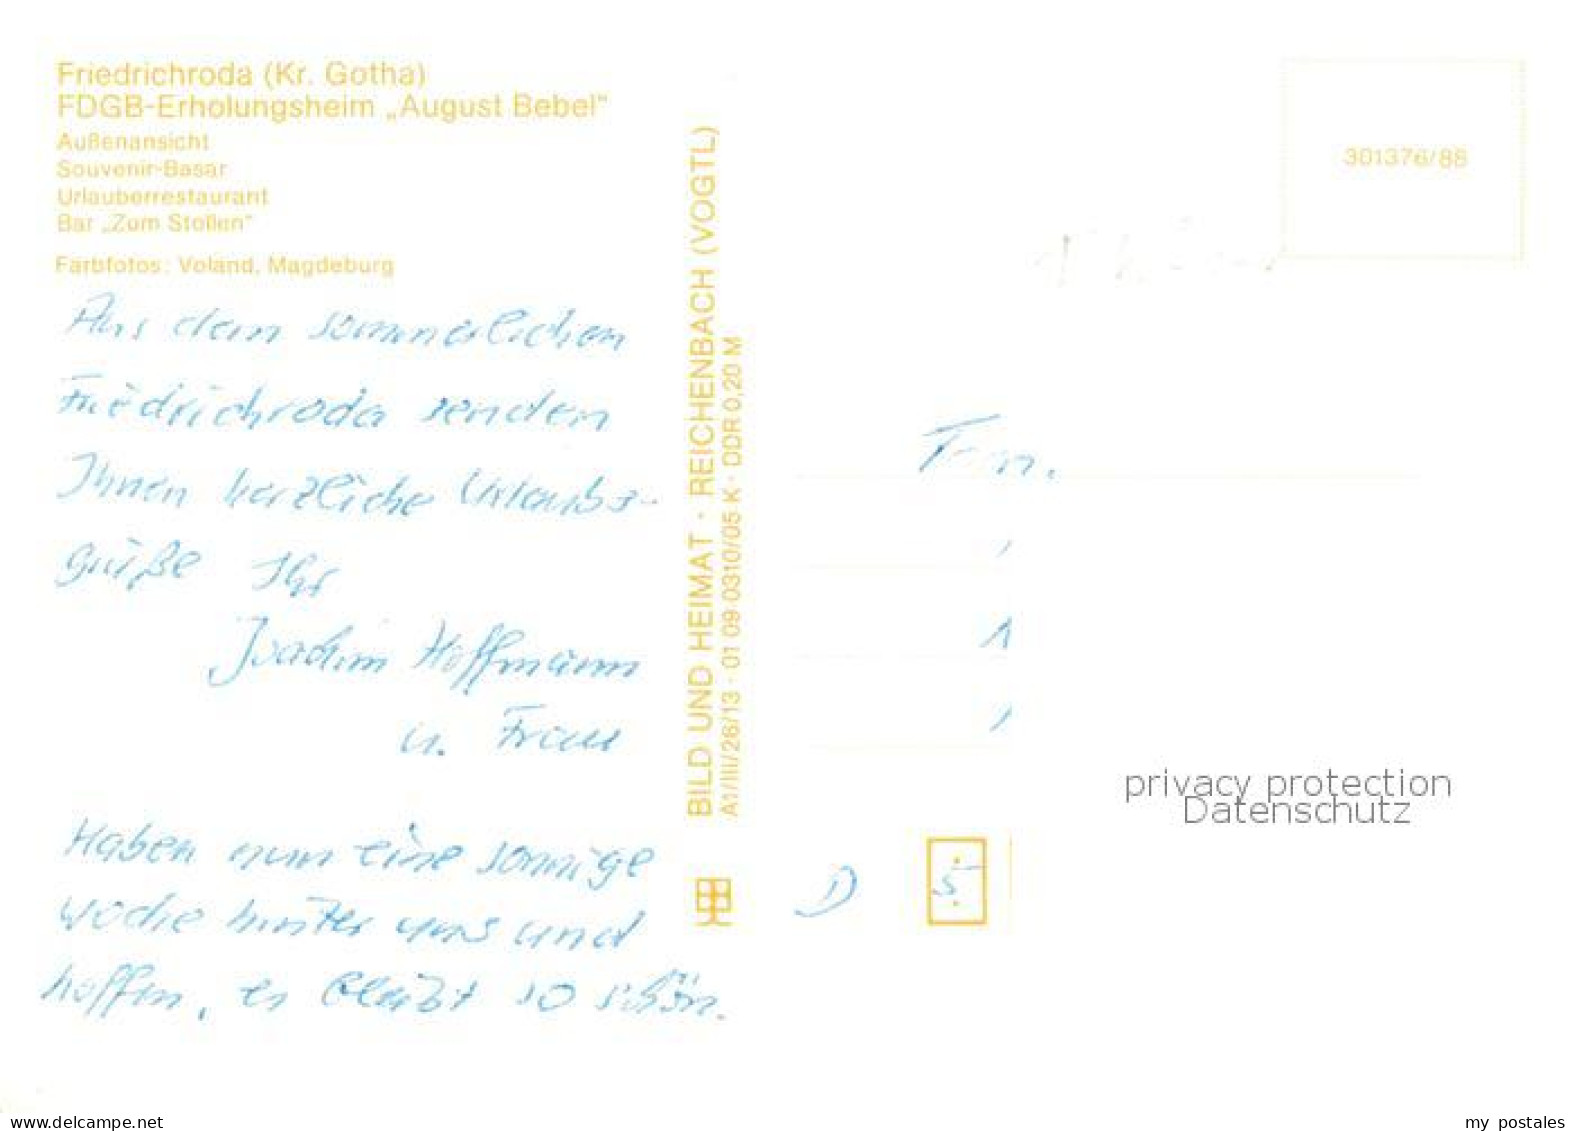 Friedrichroda (Kr. Gotha)
FDGB-Erholungsheim „August Bebel"
Außenansicht
Souvenir-Basar
Urlauberrestaurant
Bar „Zum Stollen"
Farbfotos: Voland, Magdeburg
Aus dem sommerlichen
Friedrichroda senden
Ihnen herzliche Urlaubs-
grüße Ihr
Joachim Hoffmann
u. Frau
Haben nun eine sonnige
Woche hinter uns und
hoffen, es bleibt so schön.
BILD UND HEIMAT · REICHENBACH (VOGTL)
A1/III/26/13 · 01 09 0310/05 K · DDR 0,20 M
301376/88
Fam.
D 5
privacy protection
Datenschutz
www.delcampe.net
my postales